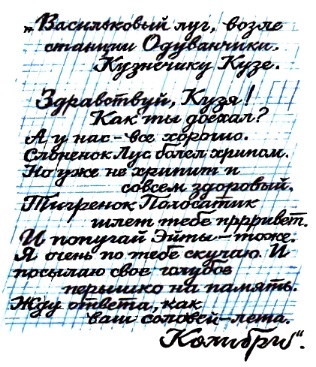 „Васильковый луг, возле
станции Одуванчики.
Кузнечику Кузе.
Здравствуй, Кузя!
Как ты доехал?
А у нас - все хорошо.
Слоненок Лус болел хрипом.
Но уже не хрипит и
совсем здоровый.
Тигренок Полосатик
шлет тебе прррривет.
И попугай Эйты - тоже.
Я очень по тебе скучаю. И
посылаю свое голубое
перышко на память.
Жду ответа, как
ваш соловей - лета.
Колибри".